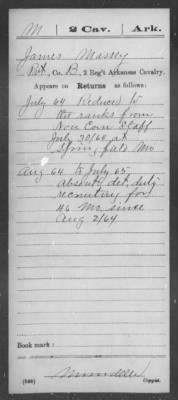 M | 2 Cav. | Ark.
James Massey
Pvt, Co. B, 2 Reg't Arkansas Cavalry.
Appears on Returns as follows:
July 64 Reduced to
the ranks from
Non Com Staff
July 30/64 at
Spring fields Mo
Aug 64 to July 65
Absent, det. duty
recruiting for
46 Mo. since
Aug 2/64
Book mark:
(546)
Copyist.